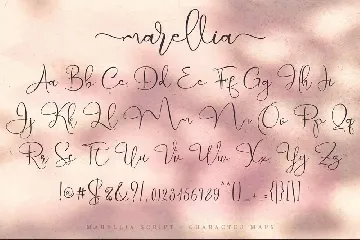 marellia
Aa Bb Cc Dd Ee Ff Gg Hh Ii
Jj Kk Ll Mm Nn Oo Pp Qq
Rr Ss Tt Uu Vv Ww Xx Yy Zz
!@#$%&?/,.0123456789^*()_-+={}[]
MARELLIA SCRIPT - CHARACTER MAPS